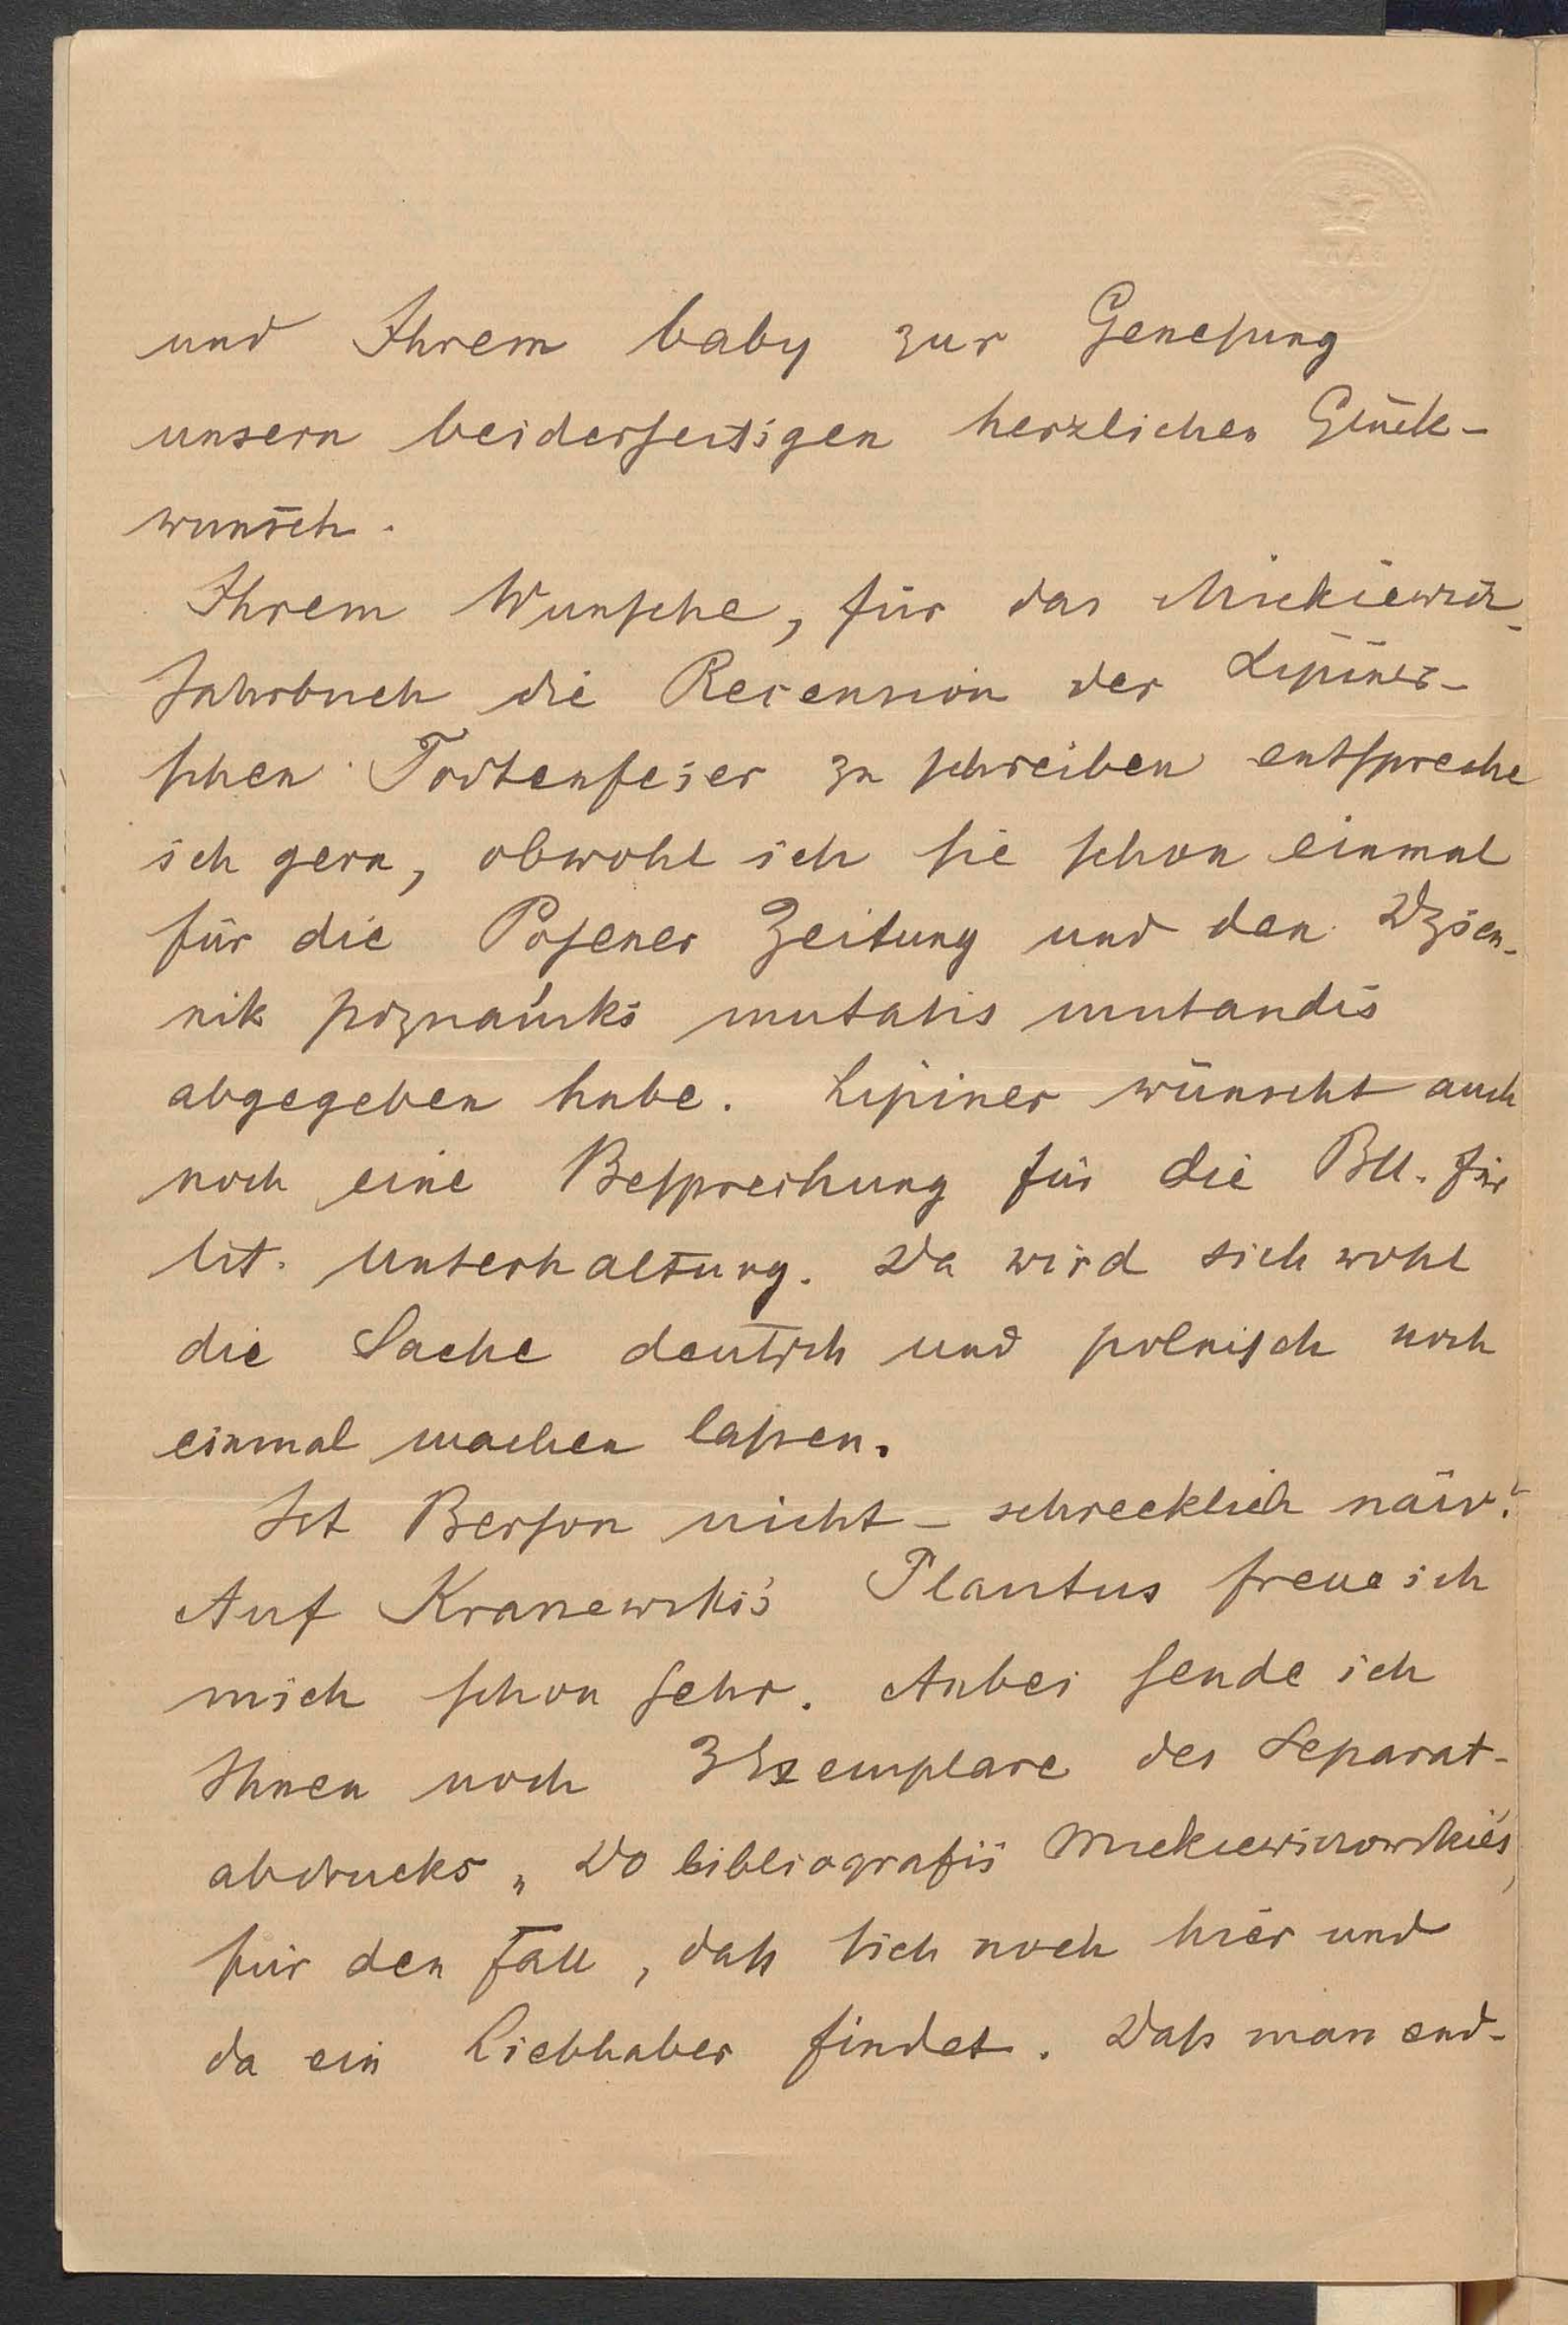 und Ihrem baby zur Genesung
unsern beiderseitigen herzlichen Glück-
wunsch.
Ihrem Wunsche, für das Mickiewicz-
Jahrbuch die Recension der Lipiner-
schen Todtenfeier zu schreiben entspreche
ich gern, obwohl ich sie schon einmal
für die Posener Zeitung und den Dzien-
nik poznański mutatis mutandis
abgegeben habe. Lipiner wünscht auch
noch eine Besprechung für die Bll. für
lit. Unterhaltung. Da wird sich wohl
die Sache deutsch und polnisch noch
einmal machen lassen.
Ist Berson nicht – schrecklich näiv?
Auf Kranewski's Plautus freue ich
mich schon sehr. Anbei sende ich
Ihnen noch 3 Exemplare des Separat-
abdrucks „Do bibliografii Mickiewiczowskiéj
für den Fall, daß sich noch hier und
da ein Liebhaber findet. Daß man end-